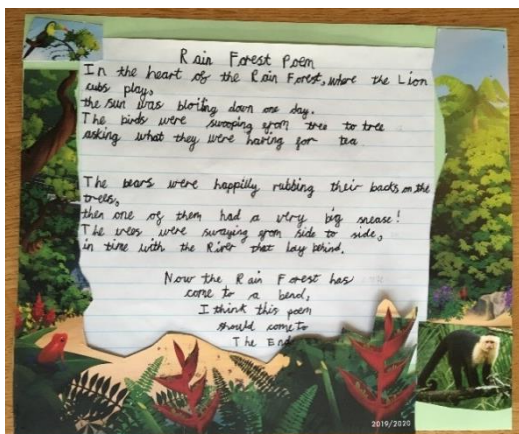 Rain Forest Poem
In the heart of the Rain Forest, where the Lion
cubs play,
the sun was bloiting down one day.
The birds were swooping from tree to tree
asking what they were having for tea
The bears were happilly rubbing their backs on the
trees,
then one of them had a very big snease!
The trees were swaying from side to side,
in time with the River that lay behind.
Now the Rain Forest has
come to a bend,
I think this poem
should come to
The End
2019/2020